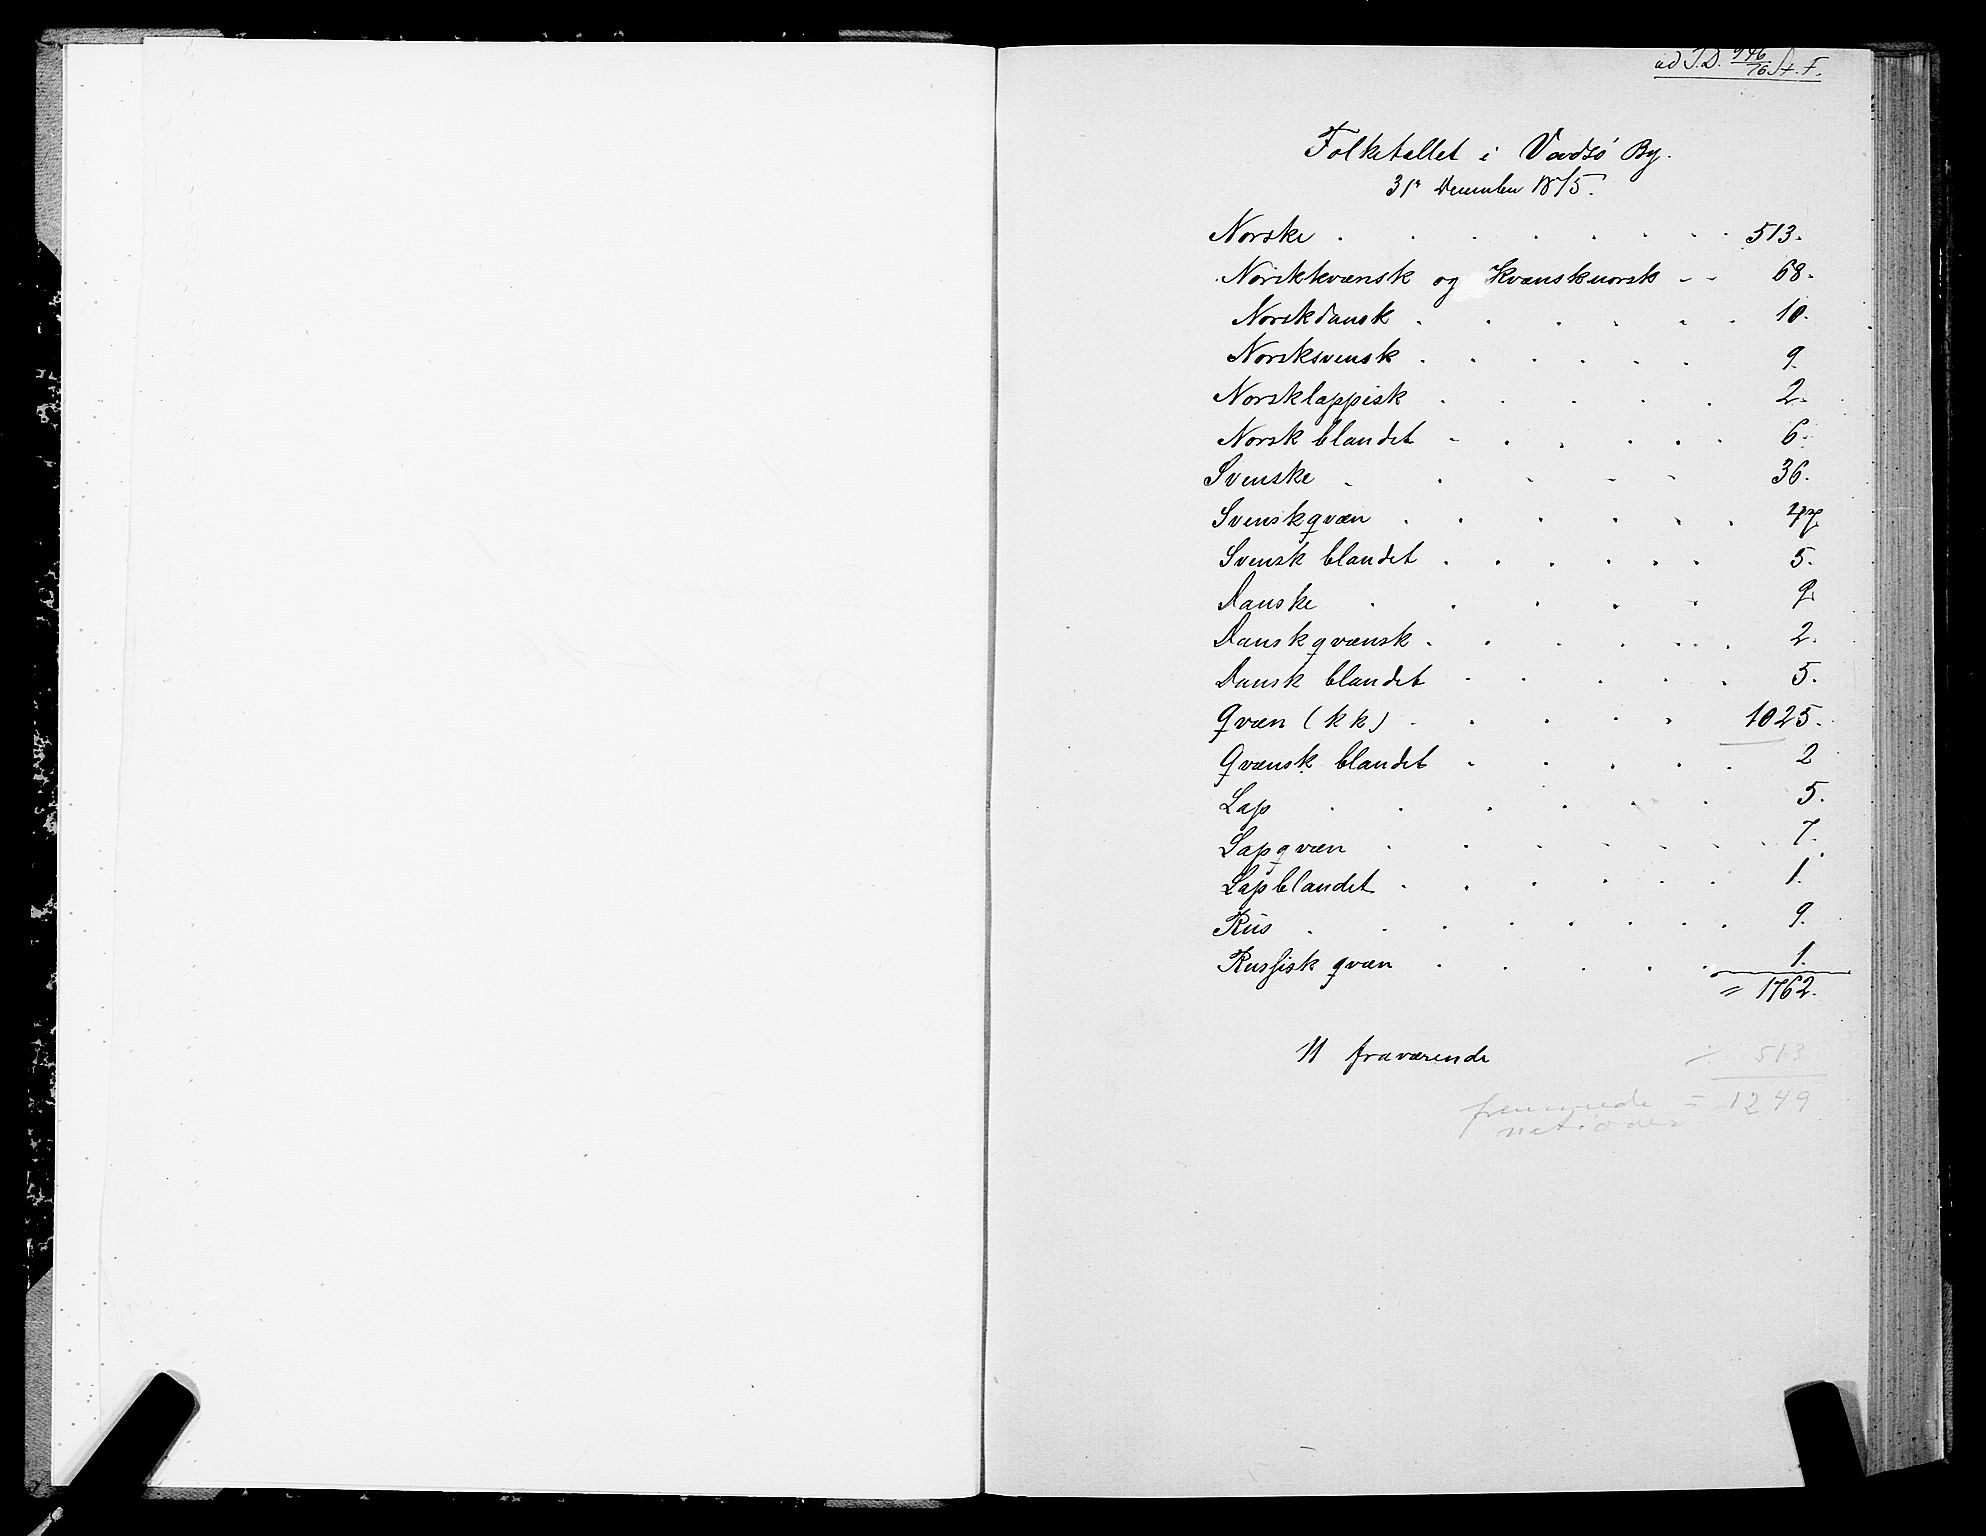 ad J.D. 946/76 St. F.
Folketallet i Vadsö By.
31r December 1875.
Norske . . . . . . . . 513.
Norskkvænsk og Kvænsknorsk - - 68.
Norskdansk . . . . . . 10.
Norsksvensk . . . . . 9.
Norsklappisk . . . . . 2.
Norsk blandet . . . . . . 6.
Svenske . . . . . 36.
Svenskqvæn . . . . . . 47
Svensk blandet . . . . . . 5.
Danske . . . . . 9.
Danskqvænsk . . . . . . 2.
Dansk blandet . . . . . 5.
Qvæn (kk) . . . . . 1025.
Qvænsk blandet . . . . . 2
Lap . . . . . . 5.
Lapqvæn . . . . . . . 7.
Lapblandet . . . . . . 1.
Rus . . . . . . . 9.
Russisk qvæn . . . . . 1.
= 1762.
11 fraværende
÷ 513
fremmede = 1249
nationer